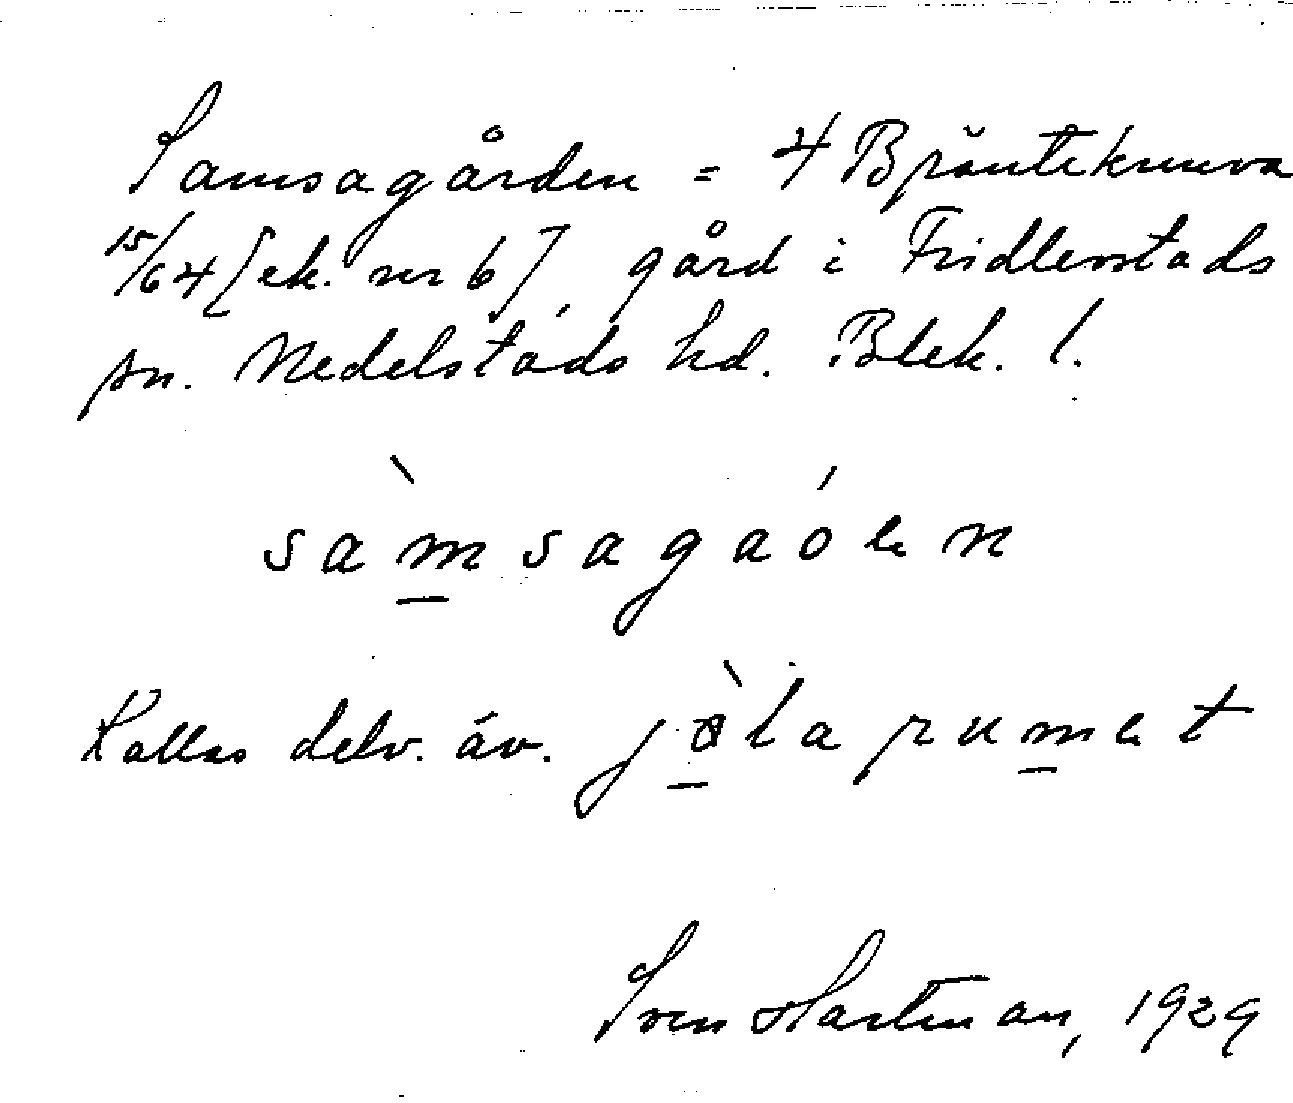 Samsagården = 4 B Spånteknuva
15/64 [ek. nr 6], gård i Fridlevstads
sn. Medelstads hd. Blek. l.
sàmsagaóen
Kallas delv. äv. jòlarumet
Sven Hartman, 1929